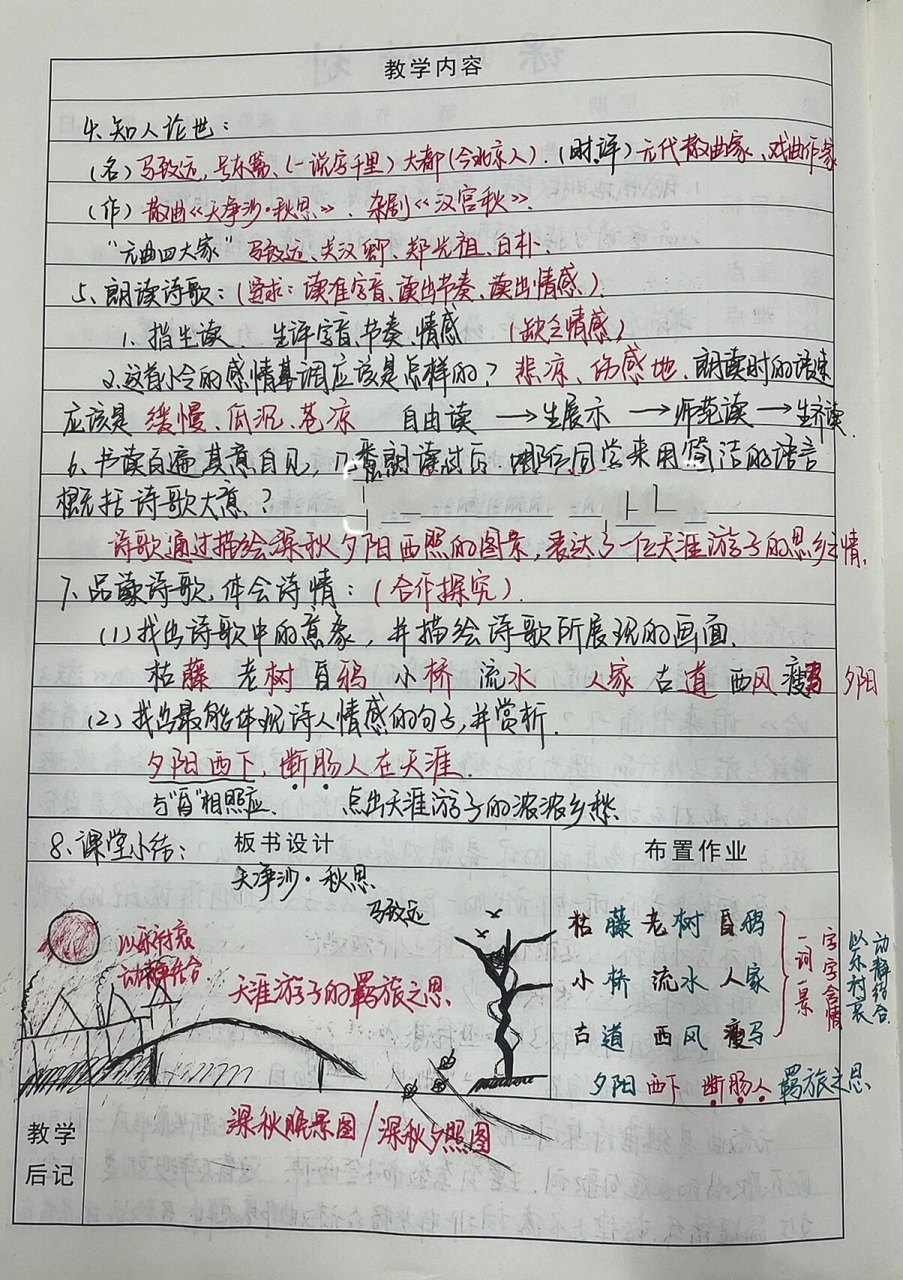 教学内容
4、知人论世：
(名) 马致远，号东篱、(一说字千里) 大都(今北京人). (时.评) 元代散曲家、戏曲作家
(作) 散曲《天净沙·秋思》、杂剧《汉宫秋》.
"元曲四大家" 马致远、关汉卿、郑光祖、白朴.
5、朗读诗歌：(要求：读准字音、读出节奏、读出情感.)
1. 指生读、 生评字音、节奏、情感 (缺乏情感)
2.这首小令的感情基调应该是怎样的？悲凉、伤感地.朗读时的语速
应该是 缓慢、低沉、苍凉 自由读 →生展示 →师范读→生齐读.
6、书读百遍其意自见，几番朗读过后.哪位同学来用简洁的语言
概括诗歌大意.？
诗歌通过描绘深秋夕阳西照的图景，表达了一位天涯游子的思乡之情.
7、品读诗歌，体会诗情：(合作探究).
(1)找出诗歌中的意象，并描绘诗歌所展现的画面.
枯藤 老树 昏鸦 小桥 流水 人家 古道 西风 瘦马 夕阳
(2)找出最能体现诗人情感的句子，并赏析.
夕阳西下，断肠人在天涯.
与"昏"相照应. 点出天涯游子的浓浓乡愁.
8、课堂小结： 板书设计 布置作业
天净沙·秋思
马致远
以乐衬哀
动静结合
天涯游子的羁旅之思.
枯藤 老树 昏鸦
小桥 流水 人家
古道 西风 瘦马
一词一景
字字含情
以乐衬哀
动静结合.
夕阳 西下 断肠人 羁旅之思
深秋晚景图/深秋夕照图
教学
后记